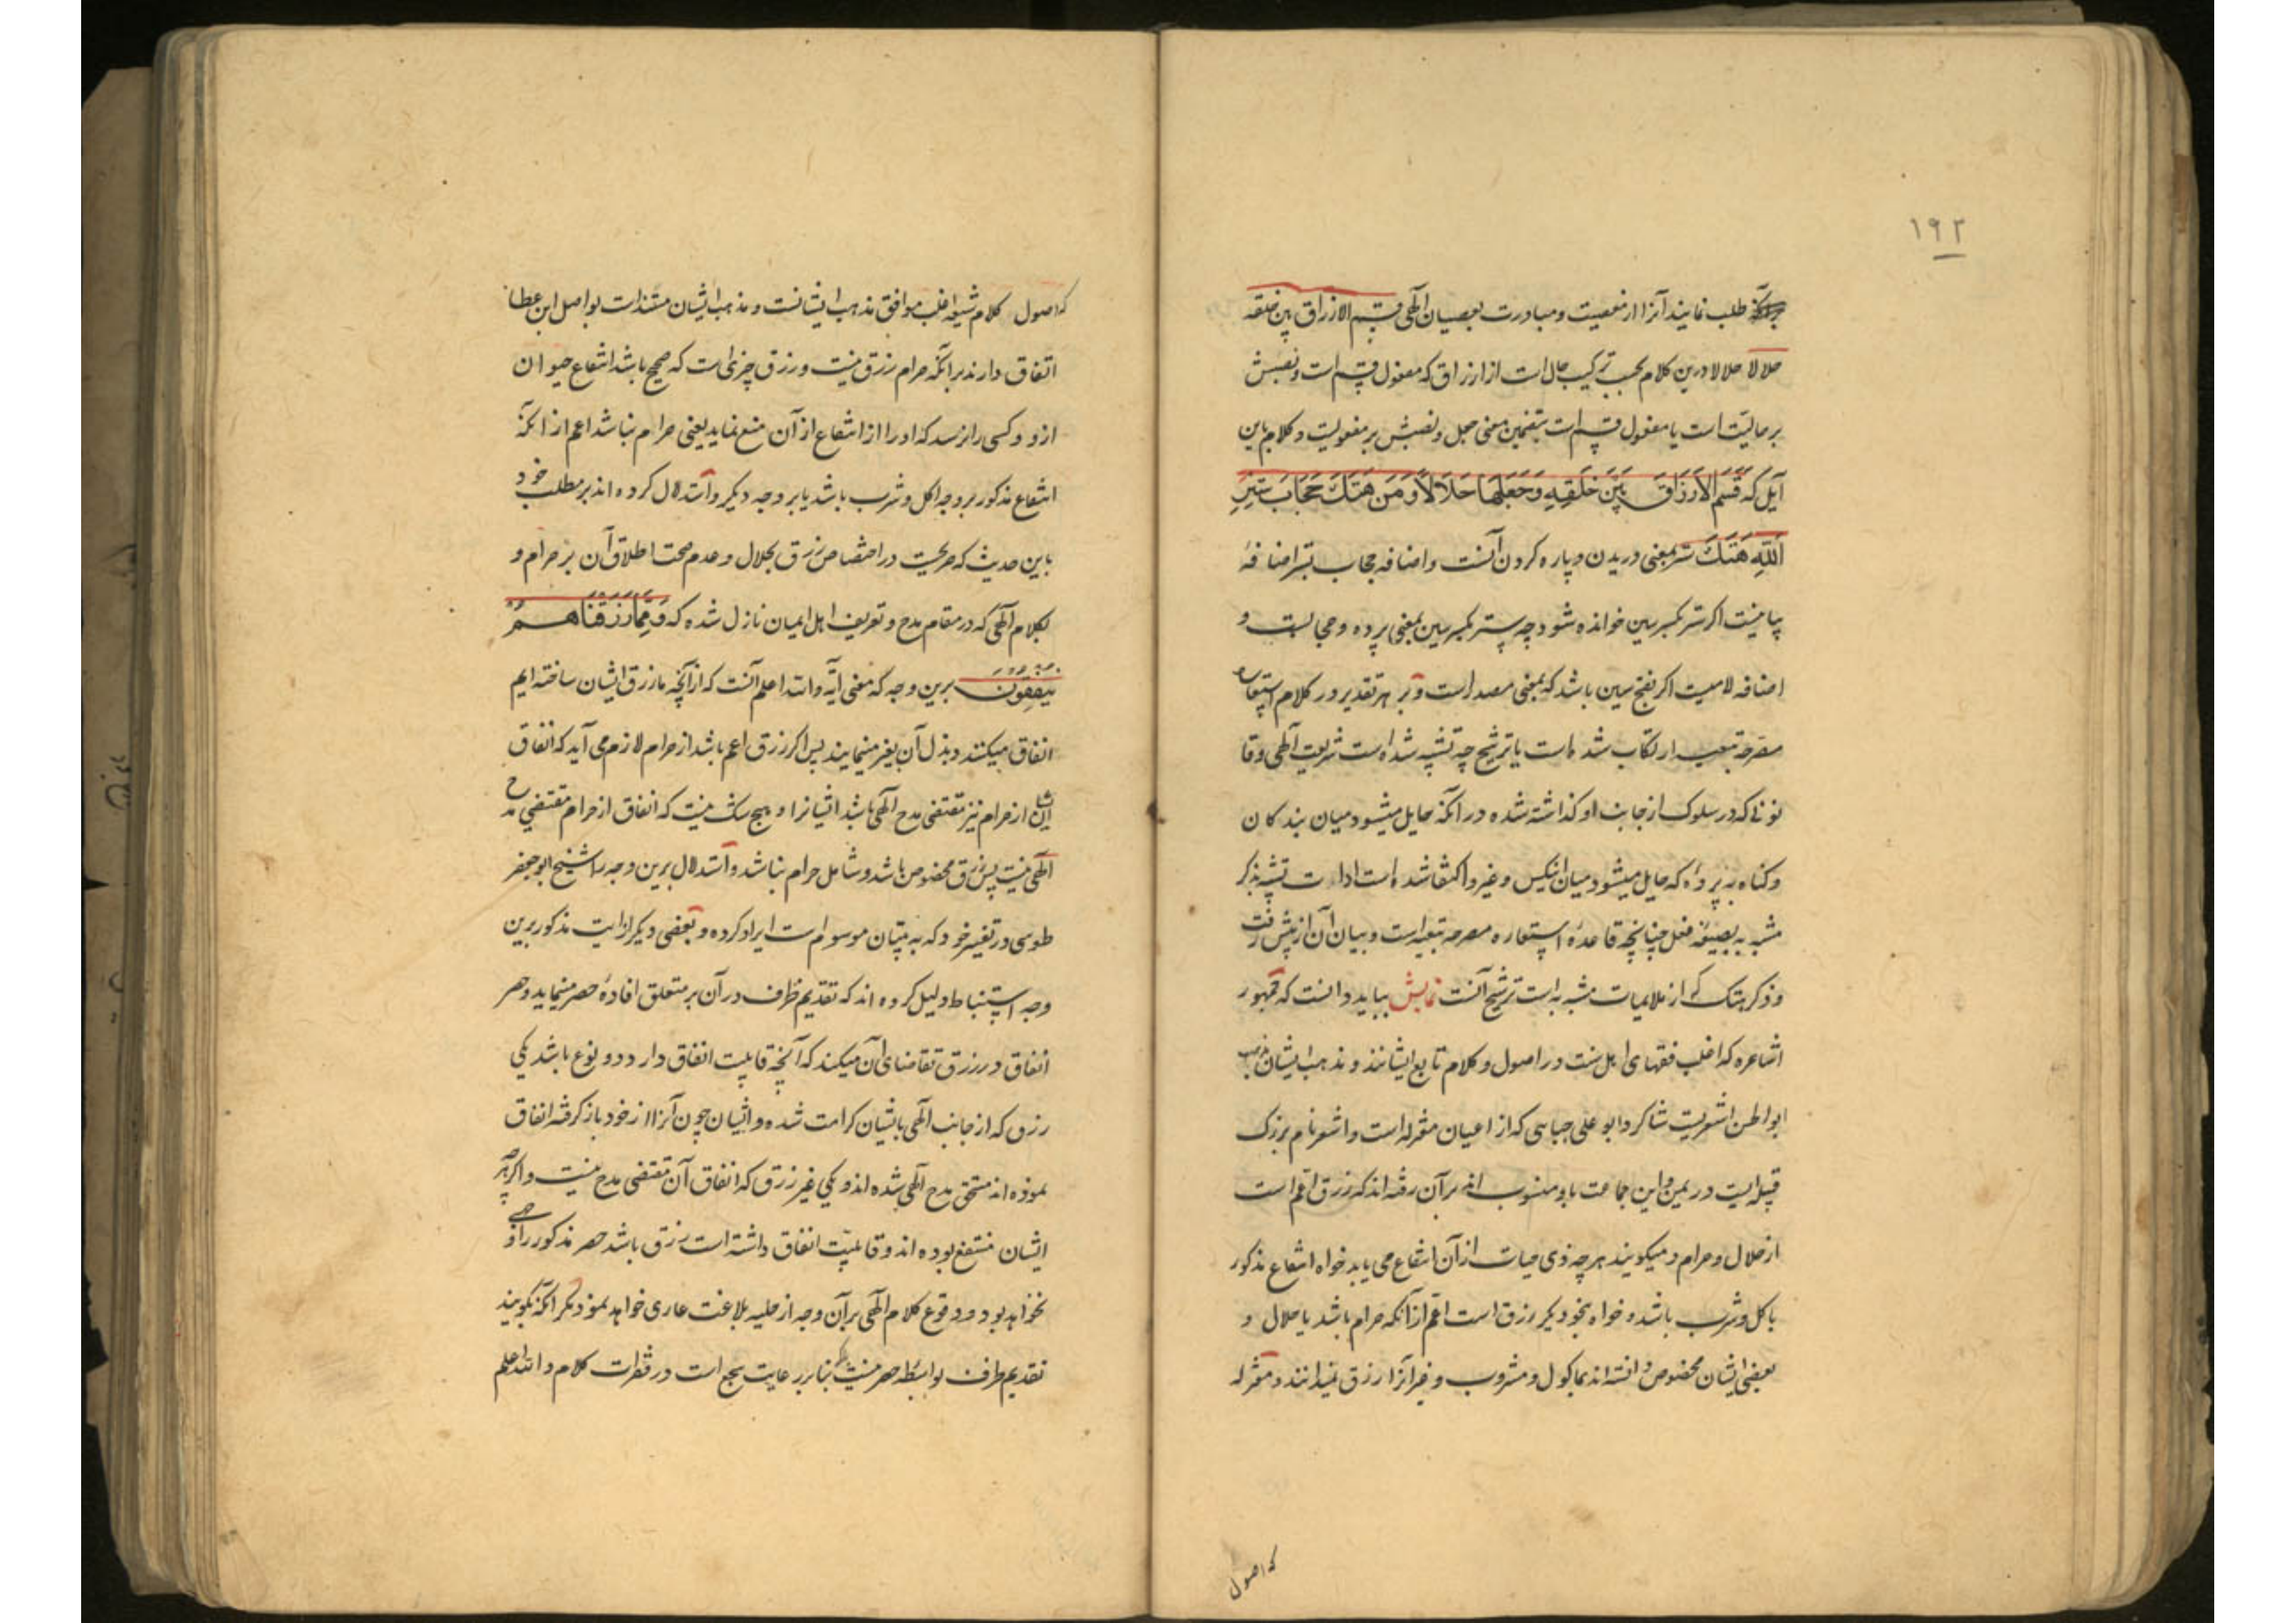 ١٩٢
طلب نمایند آنرا از معصیت و مبادرت بعصیان الهی قسم الارزاق بین خلقه
حلالا حلالا درین کلام بحسب ترکیب حال است از ارزاق که مفعول قسم است و نصبش
بر حالیت است یا مفعول قسم است بتضمین معنی جعل و نصبش بر مفعولیت و کلام باین
آیل که قَسَّمَ الأرزَاقَ بَینَ خَلقِهِ وَجَعَلَهَا حَلَالاً وَمَن هَتَكَ حِجَابَ سِترِ
اللَّهِ هَتَكَ ستر بمعنی دریدن و پاره کردن آنست و اضافه حجاب بستر اضافهٔ
بیانیست اگر ستر بکسر سین خوانده شود چه ستر بکسر سین بمعنی پرده و حجابست و
اضافه لامیست اگر بفتح سین باشد که بمعنی مصدر است و بر هر تقدیر در کلام استعاره
مصرحه تبعیه ارتکاب شده است یا ترشیح چه تشبیه شده است شریعت الهی و قا
نونی که در سلوک از جانب او گذاشته شده در آنکه حایل میشود میان بندگان
و گناه به پرده که حایل میشود میان انکس و غیر و اکتفا شده است ادات تشبیه بذکر
مشبه به بصیغه فعل چنانچه قاعدهٔ استعاره مصرحه تبعیه است و بیان آن از پیش رفت
و ذکر هتک که از ملایمات مشبه به است ترشیح آنست نمایش بباید دانست که جمهور
اشاعره که اغلب فقهای اهل سنت در اصول و کلام تابع ایشانند و مذهب ایشان مذهب
ابوالحسن اشعریست شاکرد ابو علی جبایی که از اعیان معتزله است و اشعر نام بزرک
قبیله ایست در یمن و این جماعت باو منسوب اند بر آن رفته اند که رزق اعم است
از حلال و حرام و میکویند هر چه ذی حیات از آن انتفاع می یابد خواه انتفاع مذکور
باکل و شرب باشد و خواه بنحو دیکر رزق است اعم از آنکه حرام باشد یا حلال و
بعضی ایشان مخصوص دانسته اند بماکول و مشروب و غیر آنرا رزق نمیدانند و معتزله
که اصول
که اصول کلام شیعه اغلب موافق مذهب ایشانست و مذهب ایشان مستند است بواصل ابن عطا
اتفاق دارند بر آنکه حرام رزق نیست و رزق چیزی است که صحیح باشد انتفاع حیوان
ازو و کسی را نرسد که او را از انتفاع از آن منع نماید یعنی حرام نباشد اعم از آنکه
انتفاع مذکور بر وجه اکل و شرب باشد یا بر وجه دیکر و استدلال کرده اند بر مطلب خود
باین حدیث که صریحست در اختصاص رزق بحلال و عدم صحت اطلاق آن بر حرام و
بکلام الهی که در مقام مدح و تعریف اهل ایمان نازل شده که وَمِمَّا رَزَقنَاهُم
یُنفِقُونَ برین وجه که معنی آیه و الله اعلم آنست که از آنچه ما رزق ایشان ساخته ایم
انفاق میکنند و بذل آن بغیر مینمایند پس اکر رزق اعم باشد از حرام لازم می آید که انفاق
ایشان از حرام نیز مقتضی مدح الهی باشد ایشانرا و هیچ شک نیست که انفاق از حرام مقتضی مدح
الهی نیست پس رزق مخصوص باشد و شامل حرام نباشد و استدلال برین وجه را شیخ ابو جعفر
طوسی در تفسیر خود که به تبیان موسوم است ایراد کرده و بعضی دیکر از ایت مذکور برین
وجه استنباط دلیل کرده اند که تقدیم ظرف در آن بر متعلق افادهٔ حصر مینماید و حصر
انفاق در رزق تقاضای آن میکند که آنچه قابلیت انفاق دارد دو نوع باشد یکی
رزق که از جانب الهی بایشان کرامت شده و ایشان چون آنرا از خود باز کرفته انفاق
نموده اند مستحق مدح الهی شده اند و یکی غیر رزق که انفاق آن مقتضی مدح نیست و اکر هر چه
ایشان منتفع بوده اند و قابلیت انفاق داشته است رزق باشد حصر مذکور را وجهی
نخواهد بود و وقوع کلام الهی بر آن وجه از حلیه بلاغت عاری خواهد بود مکر آنکه بکویند
تقدیم ظرف بواسطه حصر نیست بلکه بنا بر رعایت سجع است در فقرات کلام و الله اعلم